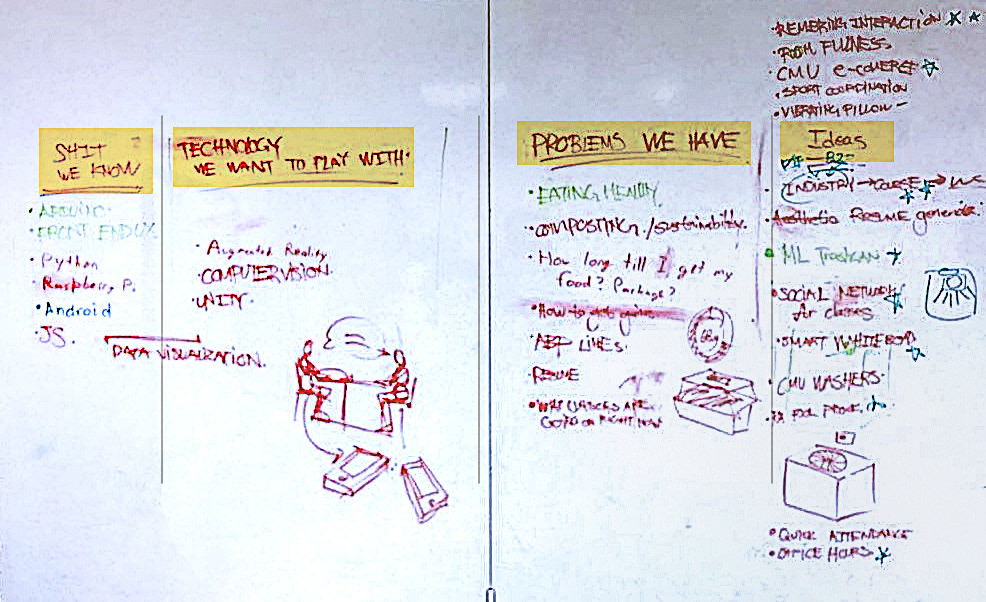 SHIT
WE KNOW
• ARDUINO
• FRONT END UX
• Python
• Raspberry P.
• Android
• JS.
TECHNOLOGY
WE WANT TO PLAY WITH:
• Augmented Reality
• COMPUTER VISION.
• UNITY.
DATA VISUALIZATION.
PROBLEMS WE HAVE
• EATING HEALTHY
• COMPOSTING./sustainability.
• How long till I get my
food? Package?
• How to get
LINES.
• RESUME
GOOD ON RIGHT NOW
• REMEBRING INTERACTION
• ROOM FULLNESS
• CMU e-COMERSE
• SPORT COORDINATION
• VIBRATING PILLOW -
Ideas
INDUSTRY → COURSE →
• Aesthetic Resume generator.
• ML Trashcan
• SOCIAL NETWORK
for classes
• SMART WHITEBOARD
• CMU WASHERS.
FOOL PROOF.
• QUICK ATTENDANCE
• OFFICE HOURS